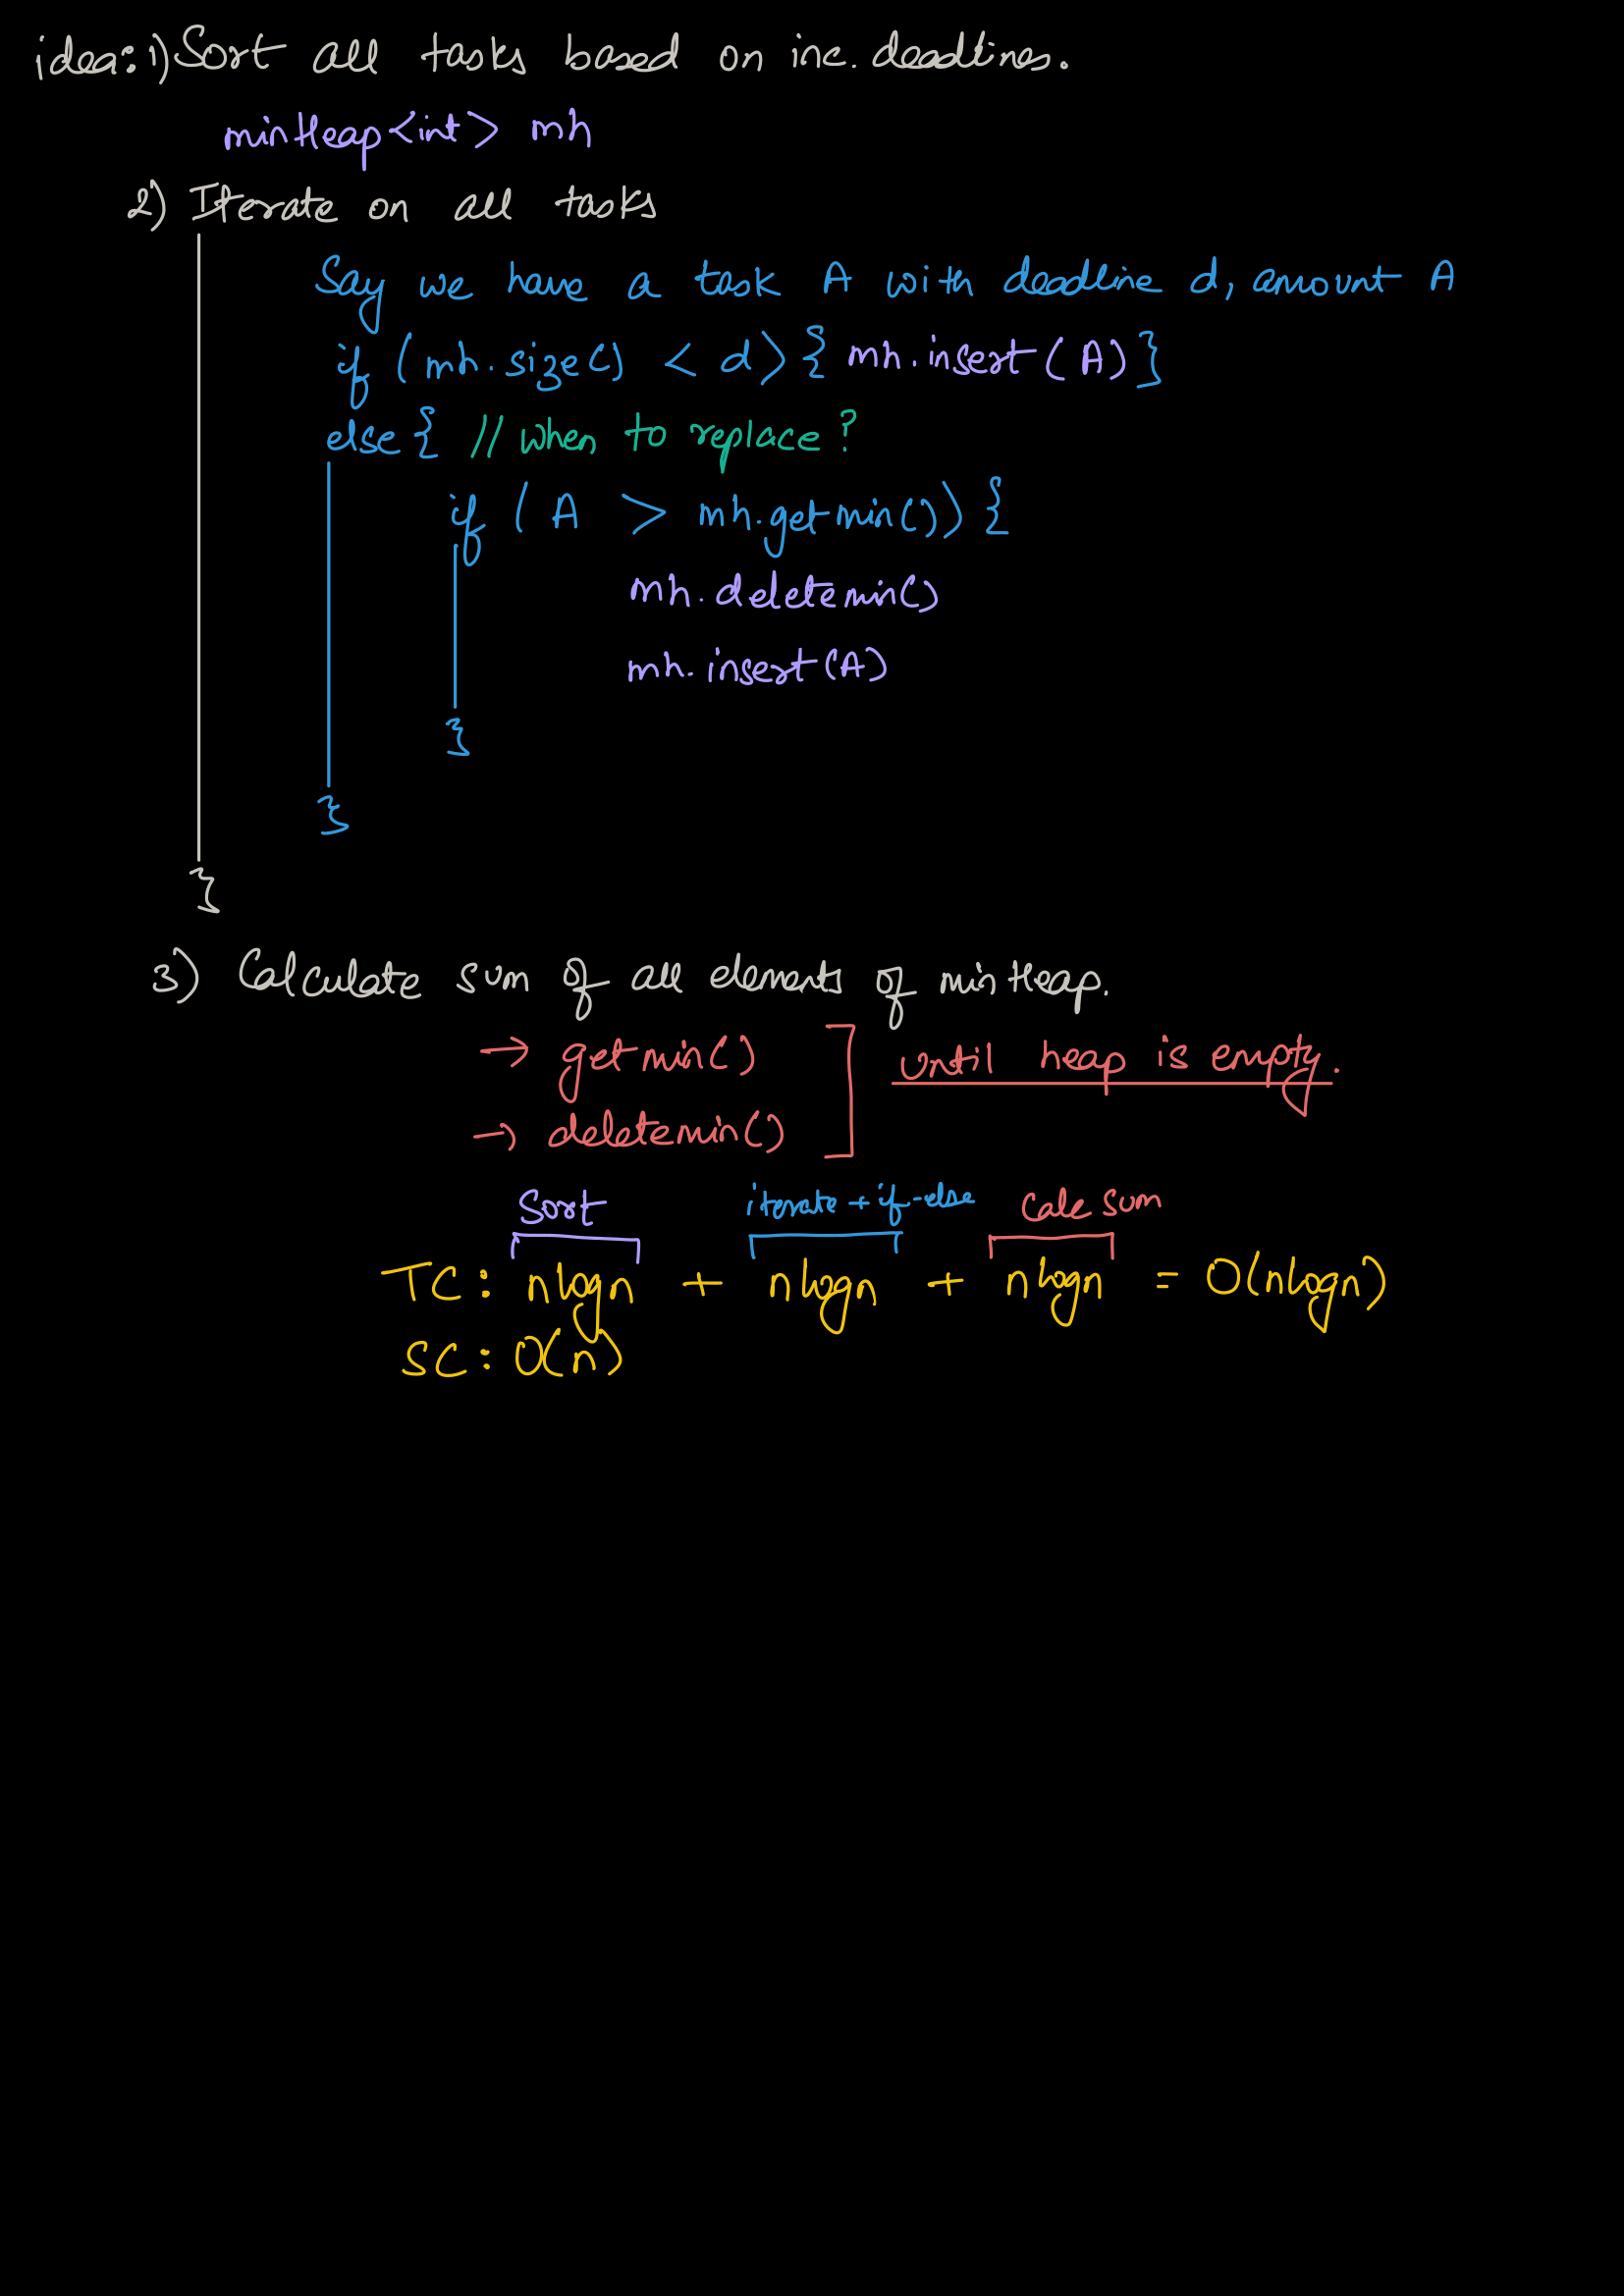 idea: 1) Sort all tasks based on inc. deadlines.
minHeap<int> mh
2) Iterate on all tasks
Say we have a task A with deadline d, amount A
if (mh.size() < d) { mh.insert(A) }
else { // when to replace?
if (A > mh.getmin()) {
mh.deletemin()
mh.insert(A)
}
}
}
3) Calculate sum of all elements of minHeap.
→ getmin()
→ deletemin()
until heap is empty.
Sort iterate + if-else Calc sum
TC: nlogn + nlogn + nlogn = O(nlogn)
SC: O(n)